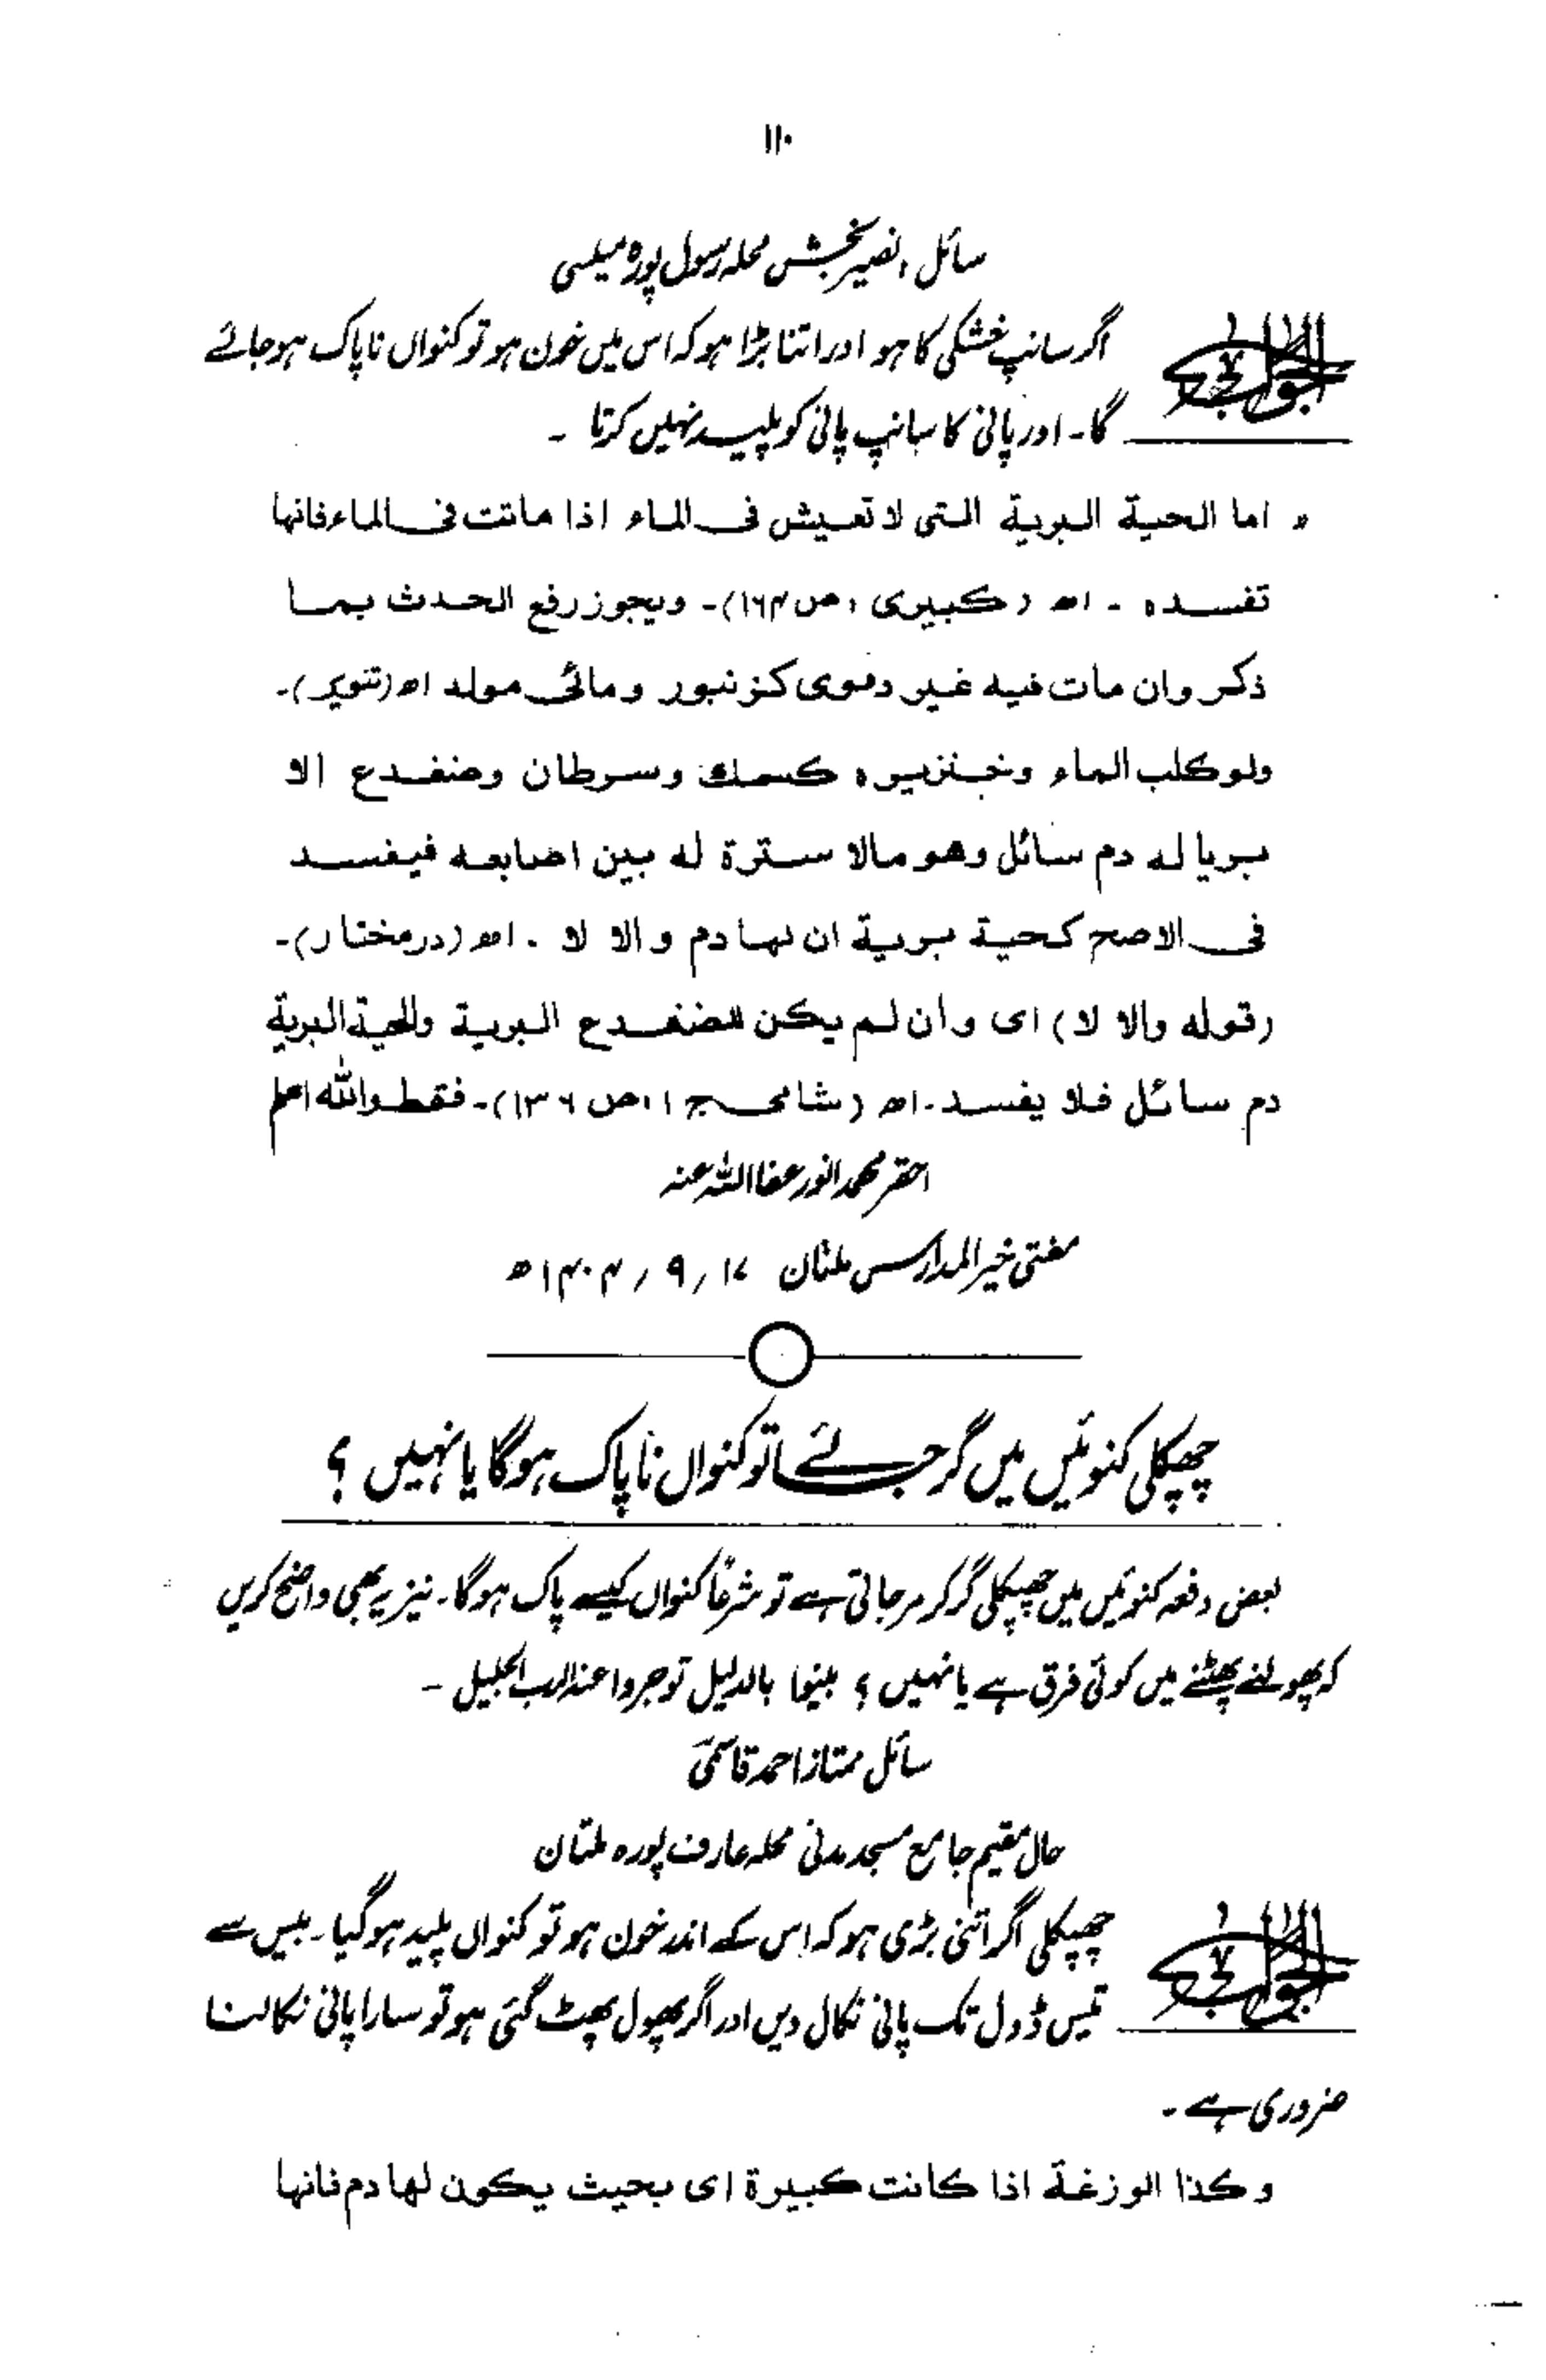 ۱۱۰
سائل، نصیر بخش محلہ رسول پورہ میلسی
الجواب اگر سانپ خشکی کا ہو اور اتنا بڑا ہو کہ اس میں خون ہو تو کنواں ناپاک ہو جائے
گا۔ اور پانی کا سانپ پانی کو پلید نہیں کرتا ۔
و اما الحية البرية التی لا تعيش فی الماء اذا ماتت فی الماء فانها
تفسده ۔ اھ (کبیری، ص ۱۶۴)۔ ویجوز رفع الحدث بما
ذکر وان مات فیه غیر دموی کزنبور ومائی مولد اھ (تنویر)۔
ولو کلب الماء وخنزیره کسمك وسرطان وضفدع الا
بریا له دم سائل وهو مالا سترة له بین اصابعه فیفسد
فی الاصح کحیة بریة ان لها دم والا لا ۔ اھ (درمختار)۔
(قوله والا لا) ای وان لم یکن للضفدع البریة والحیة البریة
دم سائل فلا یفسد۔ اھ (شامی ج ۱، ص ۱۳۶)۔ فقط واللہ اعلم
احقر محمد انور عفا اللہ عنہ
مفتی خیر المدارس ملتان ۱۷ / ۹ / ۱۴۰۴ھ
چھپکلی کنوئیں میں گر جائے تو کنواں ناپاک ہوگا یا نہیں ؟
بعض دفعہ کنوئیں میں چھپکلی گر کر مر جاتی ہے تو شرعاً کنواں کیسے پاک ہوگا۔ نیز یہ بھی واضح کریں
کہ پھولنے پھٹنے میں کوئی فرق ہے یا نہیں ؟ بینوا بالدلیل توجروا عند الرب الجلیل ۔
سائل ممتاز احمد قاسمی
حال مقیم جامع مسجد مدنی محلہ عارف پورہ ملتان
الجواب چھپکلی اگر اتنی بڑی ہو کہ اس کے اندر خون ہو تو کنواں پلید ہو گیا۔ بیس سے
تیس ڈول تک پانی نکال دیں اور اگر پھول پھٹ گئی ہو تو سارا پانی نکالنا
ضروری ہے ۔
وکذا الوزغة اذا کانت کبیرة ای بحیث یکون لها دم فانها